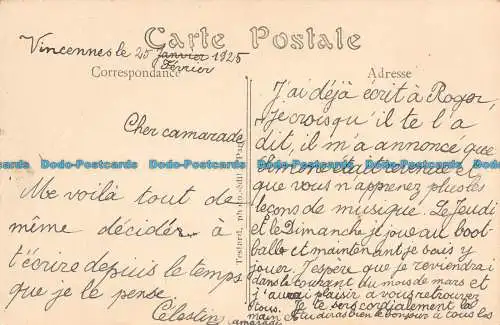 Carte Postale
Vincennes le 25 janvier 1925
Février
Correspondance
Adresse
Cher camarade
Me voilà tout de
même décidér à
t'écrire depuis le temps
que je le pense
J'ai déjà écrit à Roger
je crois qu'il te l'a
dit, il m'a annoncé que
Simone était revenue et
que vous n'apprenez plus les
leçons de musique. Le Jeudi
et le Dimanche je joue au foot-
balle et maintenant je vais y
jouer. J'espère que je reviendrai
dans le courant du mois de mars et
j'aurai plaisir à vous retrouver
tous. Je te sers cordialement la
main et tu diras bien le bonjour à tous les
camarades
Célestin
Dodo-Postcards Dodo-Postcards Dodo-Postcards Dodo-Postcards Dodo-Postcards Dodo-Postcards